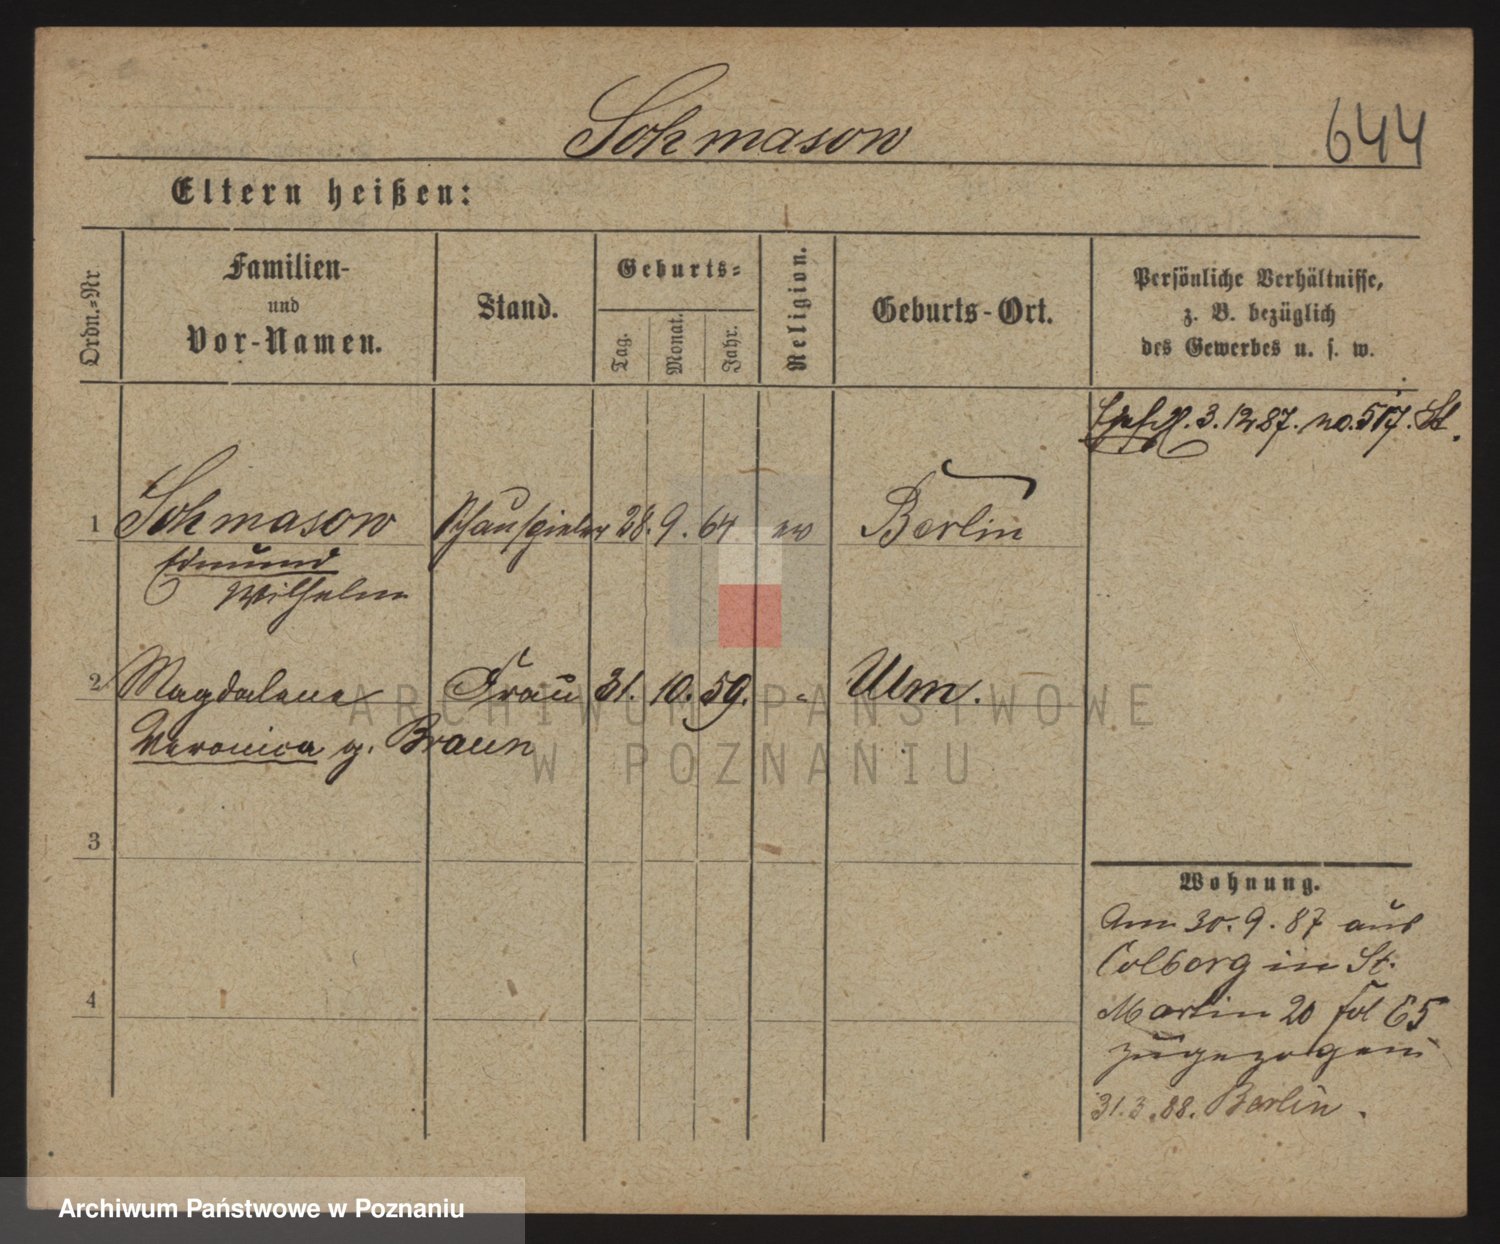 Sohmasow
644
Eltern heißen:
Ordn.=Nr
Familien-
und
Vor-Namen.
Stand.
Geburts=
Tag.
Monat.
Jahr.
Religion.
Geburts-Ort.
Persönliche Verhältnisse,
z. B. bezüglich
des Gewerbes u. s. w.
3.12 87. no. 517. St.
1 Sohmasow Schauspieler 28. 9. 64 ev Berlin
Edmund
Wilhelm
2 Magdalena Frau 31. 10. 59. " Ulm.
Veronica g. Braun
3
4
Wohnung.
Am 30. 9. 87 aus
Colberg in St.
Martin 20 fol 65
zugezogen
31.3.88. Berlin.
ARCHIWUM PAŃSTWOWE
W POZNANIU
Archiwum Państwowe w Poznaniu